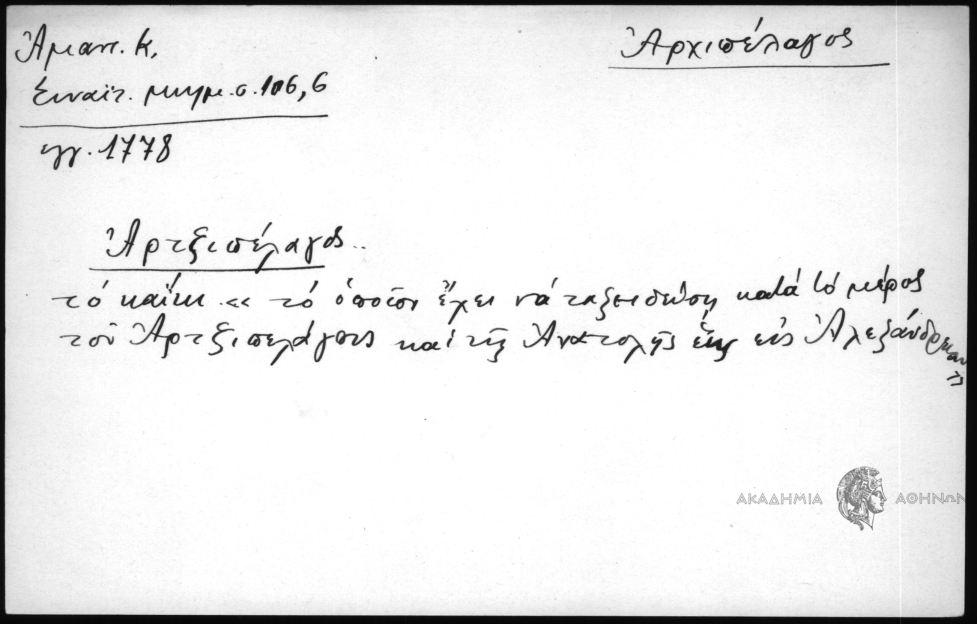 Ἀμαντ. Κ.
Ἀρχιπέλαγος
Σιναϊτ. μνημ. σ. 106, 6
ἐγγ. 1778
Ἀρτζιπέλαγος..
τό καΐκι « τό ὁποῖον ἔχει νά ταξειδεύση κατά τό μέρος
τοῦ Ἀρτζιπελάγους καί τῆς Ἀνατολῆς ἕως εἰς Ἀλεξάνδρειαν »
ΑΚΑΔΗΜΙΑ ΑΘΗΝΩΝ